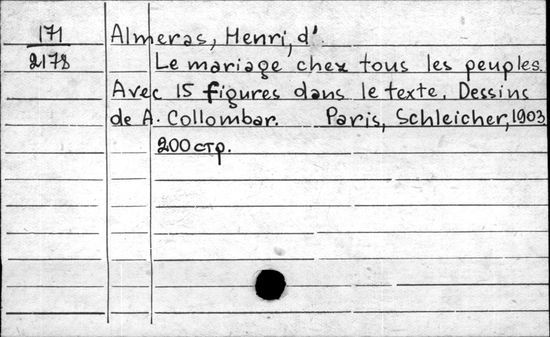 171
2178
Almeras, Henri, d'.
Le mariage chez tous les peuples.
Avec 15 figures dans le texte. Dessins
de A. Collombar. Paris, Schleicher, 1903
200 стр.